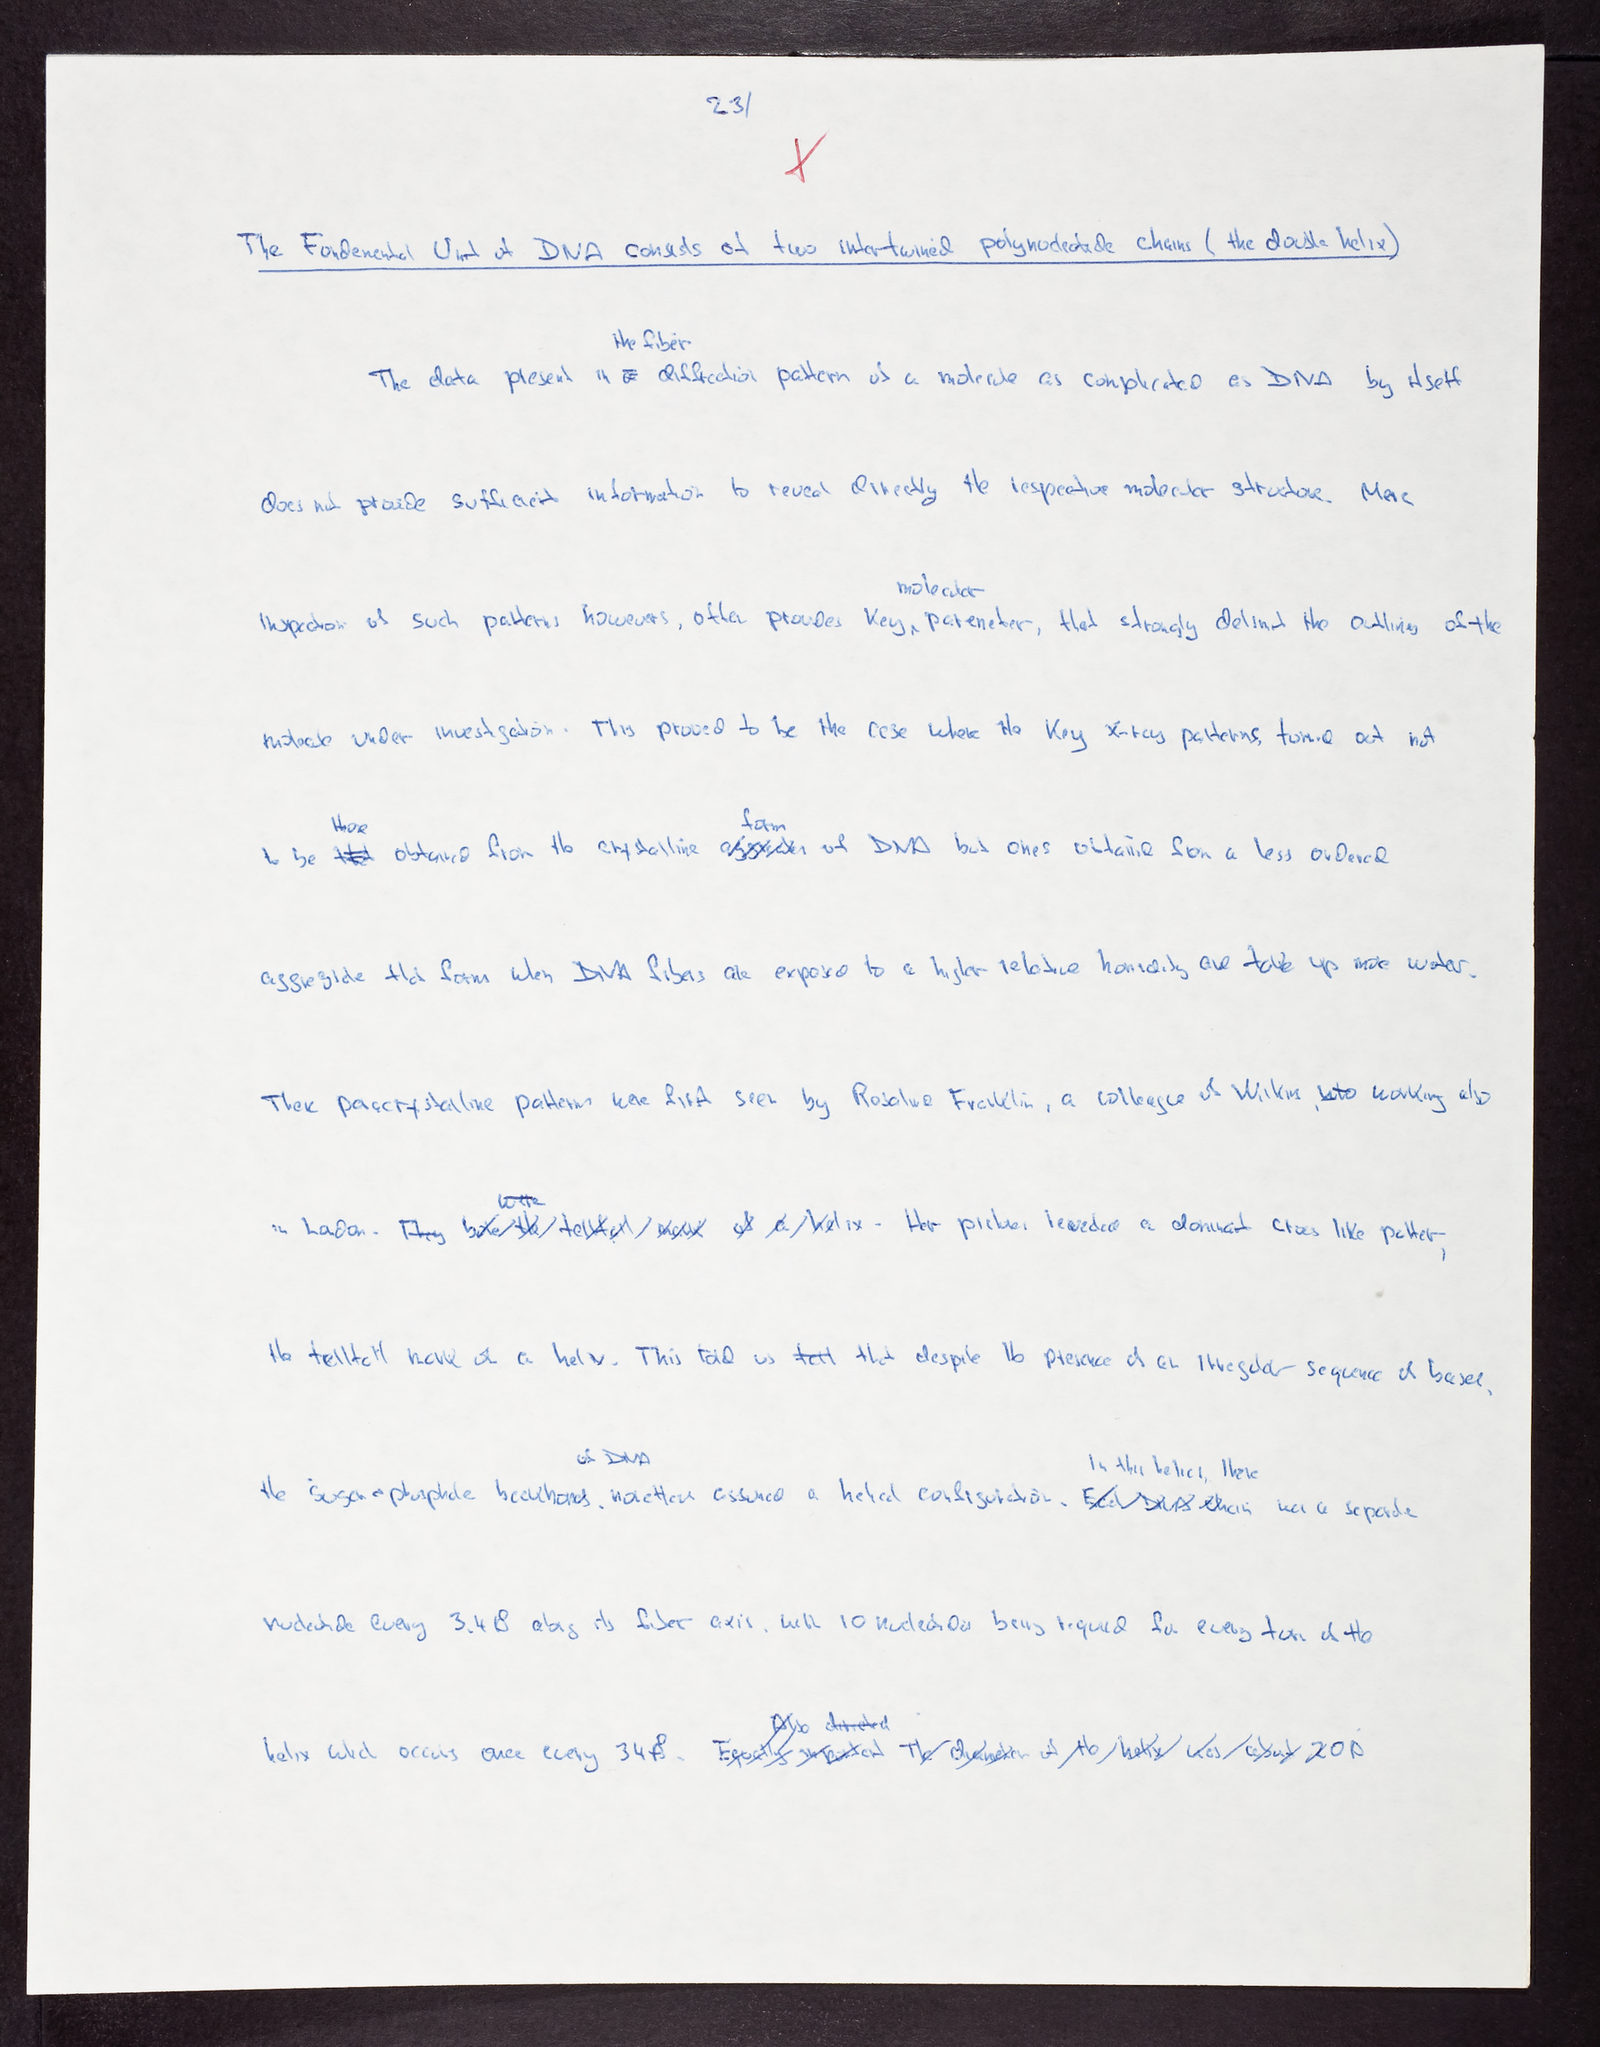 23/
The Fundemental Unit of DNA consists of two intertwined polynucleotide chains (the double helix)
the fiber
The data present in diffraction pattern of a molecule as complicated as DNA by itself
does not provide sufficient information to reveal directly the respective molecular structure. Mere
molecular
inspection of such patterns howevers, often provides key parameter, that strongly delimit the outlines of the
molecule under investigation. This proved to be the case where the key X-ray patterns, turned out not
those form
to be that obtained from the crystalline aggregates of DNA but ones obtained from a less ordered
aggregate that form when DNA fibers are exposed to a higher relative humidity and take up more water.
These paracrystalline patterns were first seen by Rosalind Franklin, a colleague of Wilkins, who working also
were
in London. They bore the telltail mark of a helix. Her pictures revealed a dominant cross like patter,
the telltail mark of a helix. This told us tell that despite the presence of an irregular sequence of bases,
of DNA In this helix, there
the sugar-phosphate backbones, nonetheless assumed a helical configuration. Each DNA chain was a separate
nucleotide every 3.4Å along its fiber axis, with 10 nucleotides being required for every turn of the
Also directed
helix which occurs once every 34Å. Equally important The diameter of the helix was about 20Å